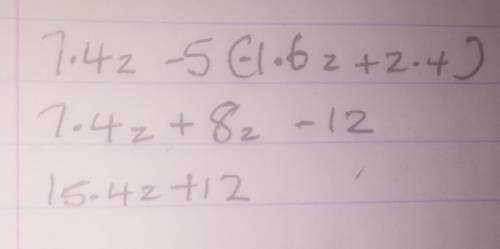 7.4z -5(-1.6z+2.4)
7.4z + 8z -12
15.4z+12